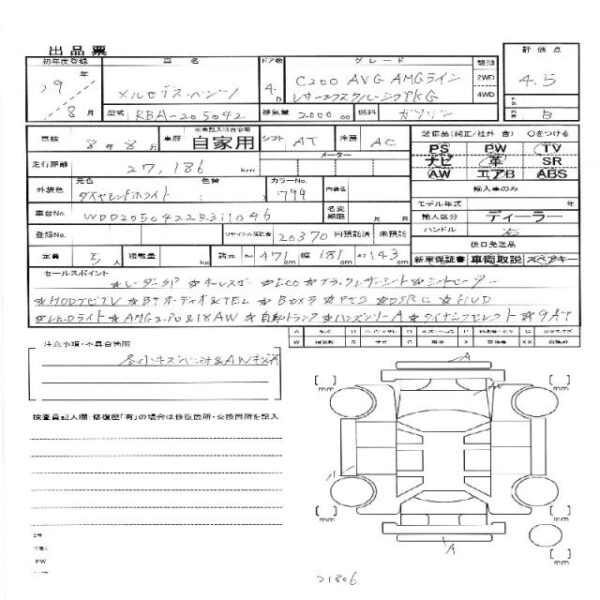 出品票
初年度登録 車名 ドア数 グレード 駆動 評価点
29年 メルセデス・ベンツ 4D C200 AVG AMGライン 2WD 4.5
8月 レザーエクスクルーシブPKG 4WD
型式 RBA-205042 排気量 2000 cc 燃料 ガソリン 内装 B
車検 8年8月 車歴 自家用 シフト AT 冷房 AC 装備品(純正/社外 含) ○をつける
PS PW TV
走行距離 27,186 km メーター ナビ 革 SR
AW エアB ABS
外装色 元色 色替 カラーNo. 内装色 輸入車のみ
ダイヤモンドホワイト 799 モデル年式 年
車台No. WDD2050422R311046 名変期限 月 日 輸入区分 ディーラー
ハンドル 右
登録No. リサイクル預託金 20370 円預託済 未預託 後日発送品
定員 5人 積載量 kg 諸元 長さ 471 cm 幅 181 cm 高さ 143 cm 新車保証書 車両取説 スペアキー
セールスポイント
☆レーダーSP ☆キーレスゴー ☆ECO ☆ブラックレザーシート ☆シートヒーター
☆HDDナビTV ☆BTオーディオ&TEL ☆Bカメラ ☆PTS ☆DSRC ☆HUD
☆LEDライト ☆AMGエアロ&18AW ☆自動トランク ☆ハンズフリーA ☆ダイナミックセレクト ☆9AT
注意事項・不具合箇所
各小キズヘコミ&AWキズ有
検査員記入欄・修復歴「有」の場合は修復箇所・交換箇所を記入
A
[ ] mm
[ ] mm
[ ] mm
[ ] mm
[ ] mm
A
PW
21806